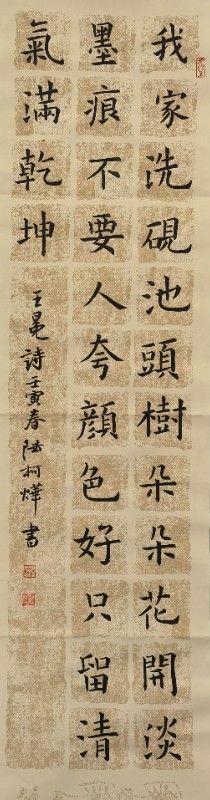 我家洗硯池頭樹朵朵花開淡
墨痕不要人夸顏色好只留清
氣滿乾坤
王冕詩壬寅春陆柯燁書